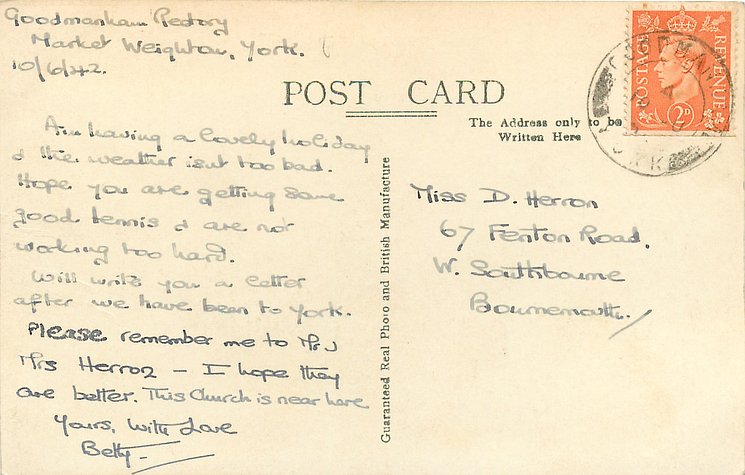 Goodmanham Rectory
Market Weighton, York.
10/6/42.
POST CARD
The Address only to be
Written Here
POSTAGE
REVENUE
2D
Am having a lovely holiday
& the weather isnt too bad.
Hope you are getting some
good tennis & are not
working too hard.
Will write you a letter
after we have been to York.
Please remember me to Mr &
Mrs Herron – I hope they
are better. This Church is near here
Yours, with Love
Betty
Guaranteed Real Photo and British Manufacture
Miss D. Herron
67 Fenton Road.
W. Southbourne
Bournemouth.